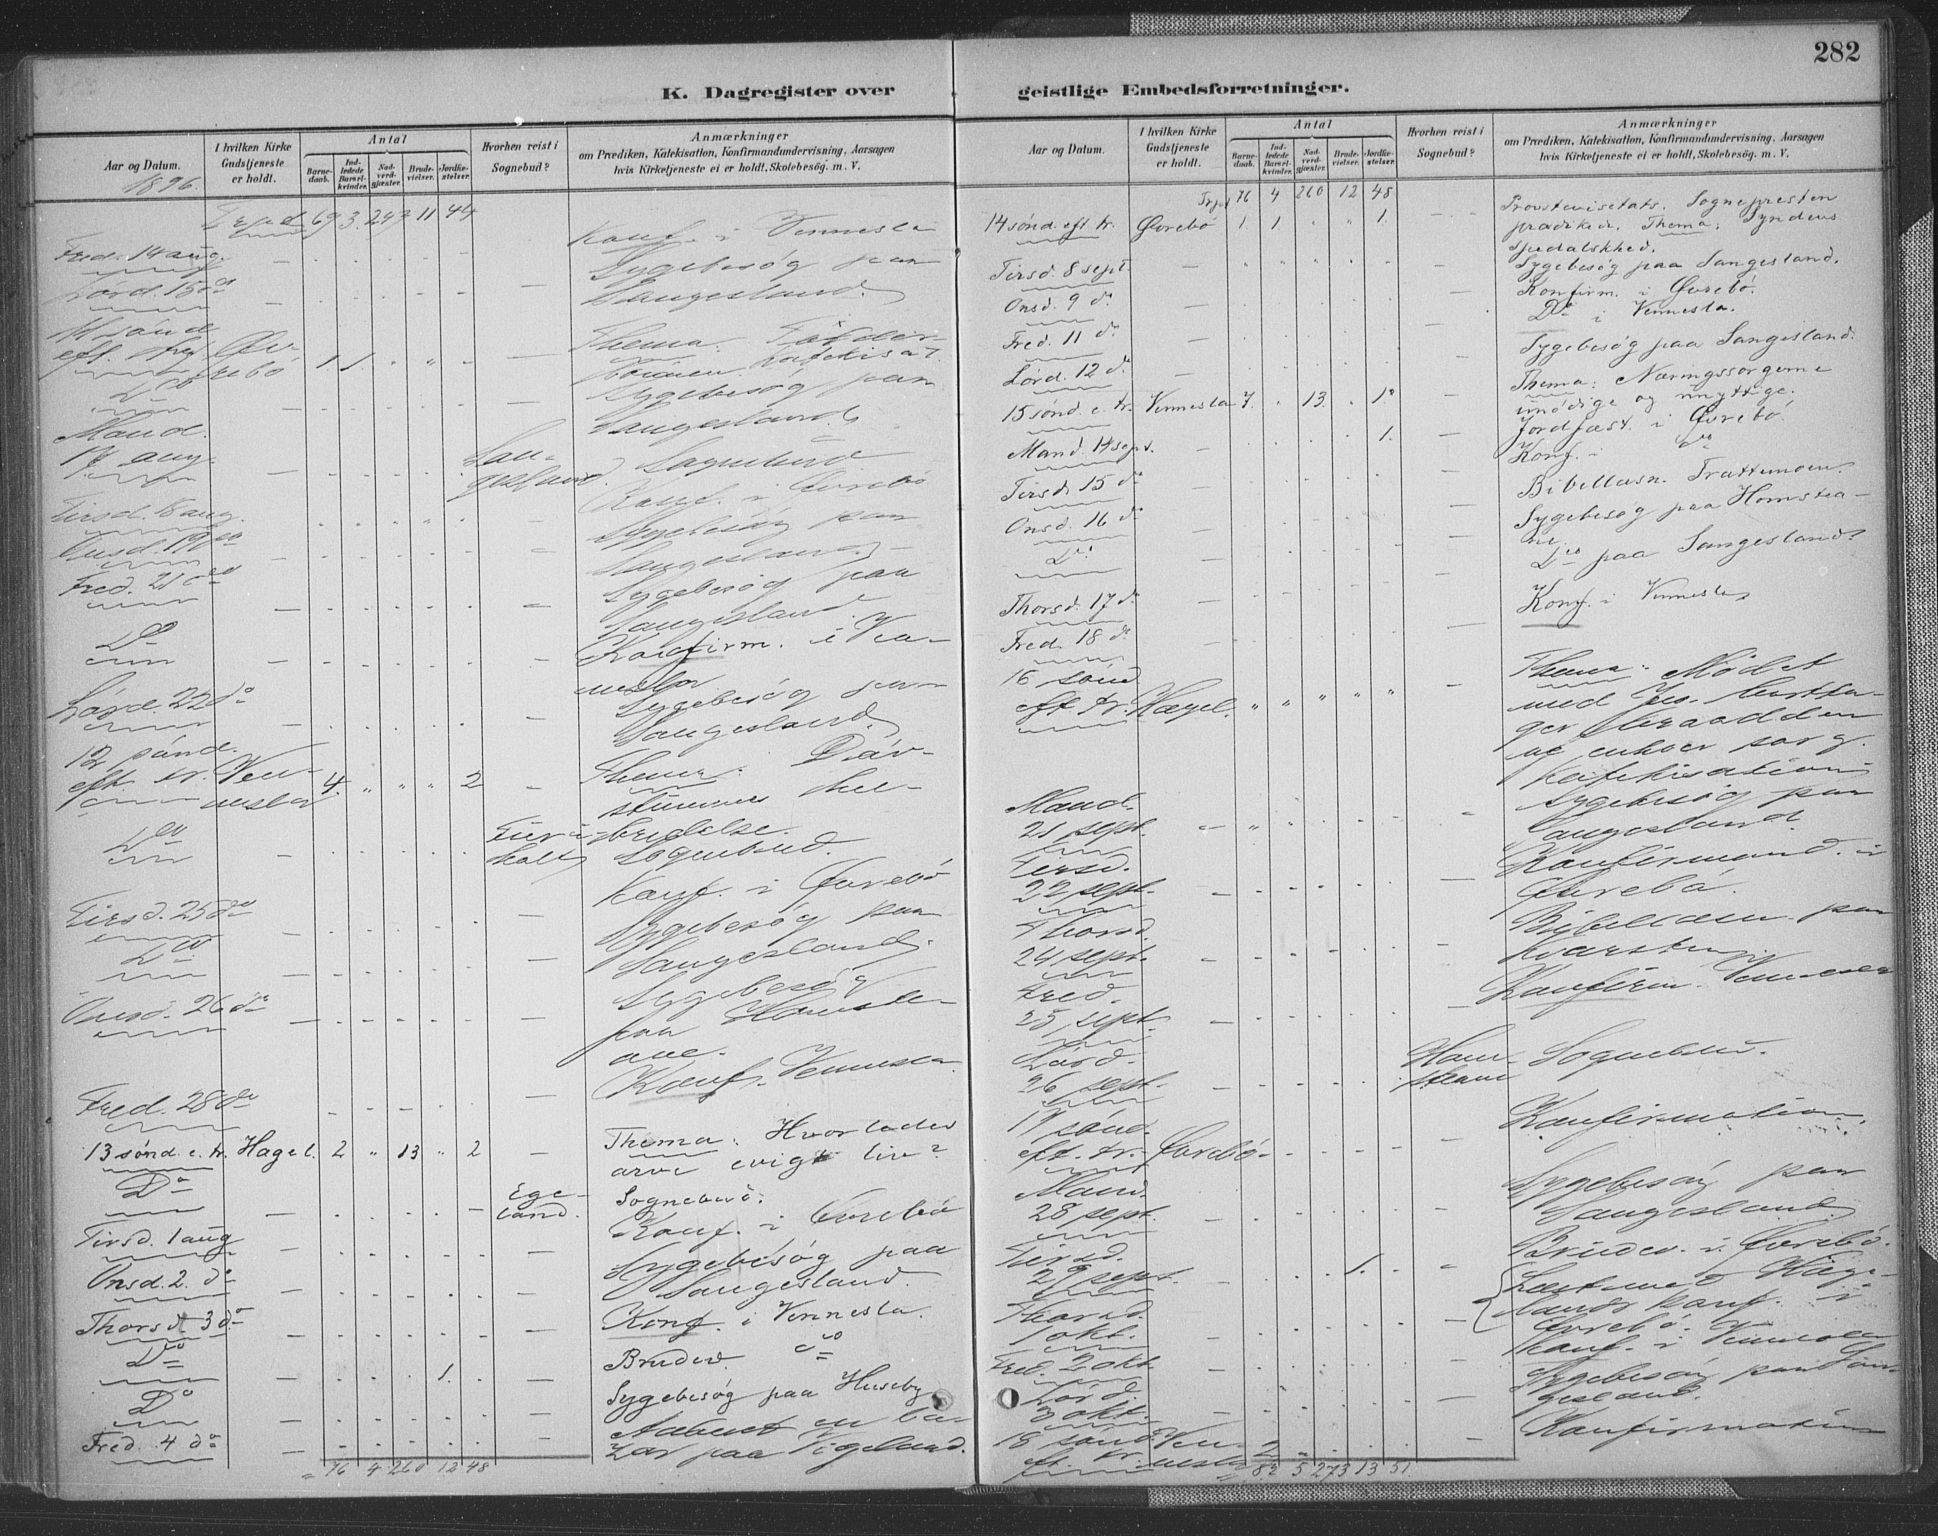 282
K. Dagregister over
geistlige Embedsforretninger.
Aar og Datum.
1896.
I hvilken Kirke Gudstjeneste er holdt.
Antal
Barne- daab.
Ind- ledede Barsel- kvinder.
Nad- verd- gjæster.
Brude- vielser.
Jordfæ- stelser.
Hvorhen reist i Sognebud?
Anmærkninger
om Prædiken, Katekisation, Konfirmandundervisning, Aarsagen
hvis Kirketjeneste ei er holdt, Skolebesøg. m. V.
69 3. 247 11 44
Fred. 14 aug. Konf. i Vennesla
Lørd. 15 do Sygebesøg paa
Langesland.
11 sønd
eft. tref. Øv- Thema:
rebø 1 1
Do Sygebesøg paa
Langesland.
Mand.
17 aug. Lan-
gesland. Sognebud
Tirsd. 18 aug. Konf. i Øvrebø
Onsd. 19 do Sygebesøg paa
Langesland.
Fred. 21 do Sygebesøg paa
Langesland
Do Konfirm. i Ven-
nesla
Lørd. 22 do Sygebesøg paa
Langesland.
12 sønd.
eft. tr. Ven- 4. " " " 2 Thema: Døv-
nesla stummes hel-
bredelse.
Do Sognebud.
Tirsd. 25 do Konf. i Øvrebø
Do Sygebesøg paa
Langesland.
Onsd. 26 do Sygebesøg
paa Homste-
ane.
Fred. 28 do Konf. Vennesla.
13 sønd. e. tr. Hægel. 2 " 13 " 2 Thema: Hvorledes
arve evigt liv?
Do Ege-
land. Sognebud.
Tirsd. 1 aug Konf. i Øvrebø
Onsd. 2. do Sygebesøg paa
Langesland.
Thorsd. 3 do Konf. i Vennesla.
Do 1. Brudev. do
Do Sygebesøg paa Huseby
Fred. 4 do Aabnet en ba-
zar paa Vigeland.
= 76 4 260 12 48
Aar og Datum.
I hvilken Kirke Gudstjeneste er holdt.
Antal
Barne- daab.
Ind- ledede Barsel- kvinder.
Nad- verd- gjæster.
Brude- vielser.
Jordfæ- stelser.
Hvorhen reist i Sognebud?
Anmærkninger
om Prædiken, Katekisation, Konfirmandundervisning, Aarsagen
hvis Kirketjeneste ei er holdt, Skolebesøg. m. V.
76 4 260 12 48
14 sønd. eft. tr. Øvrebø 1. 1 " " 1. Provstevisetats. Sognepresten
prædiked. Thema: Syndens
Spedalskhed.
Tirsd. 8 sept. Sygebesøg paa Langesland.
Onsd. 9 do Konfirm. i Øvrebø.
Fred. 11 do Do i Vennesla.
Lørd. 12 do Sygebesøg paa Langesland.
15 sønd. e. tr. Vennesla 7. " 13. " 1. Thema: Næringssorgerne
unødige og unyttige.
Mand. 14 sept. 1. Jordfæst. i Øvrebø
Tirsd. 15 do Konf. i do
Onsd. 16 do Bibellæsn.
Do Sygebesøg paa Homstea-
ne.
Do paa Langesland.
Thorsd. 17 do
Fred. 18 do Konf. i Vennesla
16 sønd
eft. tr. Hægel. " " " " " Thema: Mødet
med Jes.
og enhver sorg.
Katekisation
Mand.
21 sept. Sygebesøg paa
Langesland.
Tirsd.
22 sept. Konfirmand. i
Øvrebø.
Thorsd.
24 sept. Bibellæsn. paa
Fred.
25 sept. Konfirm. Vennesla
Lørd.
26 sept. Hom-
steane Sognebud.
17 sønd.
eft. tr. Øvrebø Konfirmation.
Mand.
28 sept. Sygebesøg paa
Langesland
Tirsd.
29 sept. 1. Brudev. i Øvrebø.
Thorsd.
1 okt. konf. i
Øvrebø.
Fred. 2 okt. Konf. i Vennesla
Lørd.
3 okt. Sygebesøg paa Lan-
gesland.
18 sønd. Ven-
eft. tr. nesla 2 Konfirmation
= 82 5 273 13 51.